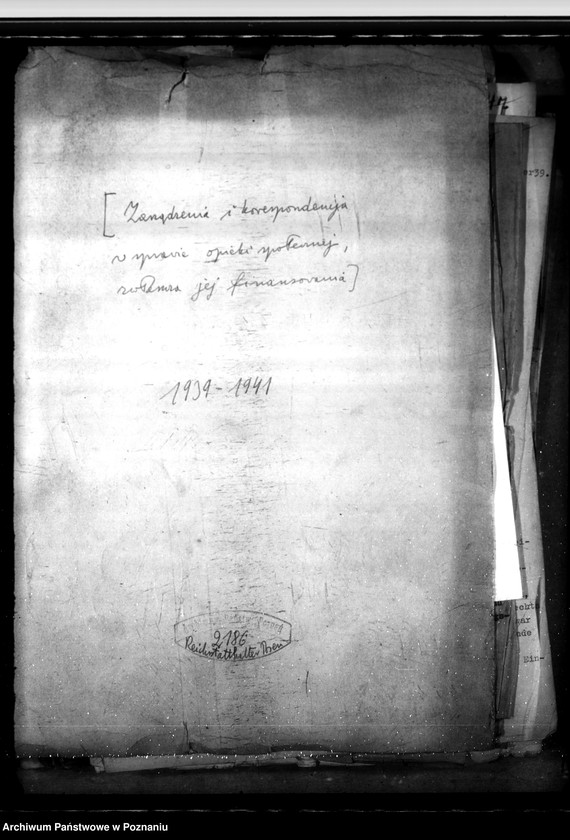 [Zarządzenia i korespondencja
w sprawie opieki społecznej,
zwłaszcza jej finansowania]
1939-1941
2186
Reichsstatthalter Posen
17
39.
Ein-
Archiwum Państwowe w Poznaniu